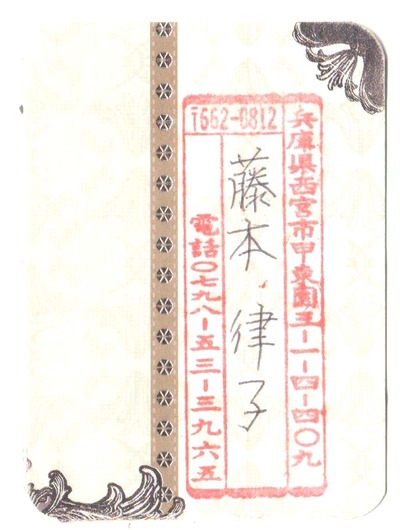 〒662-0812
兵庫県西宮市甲東園三-一-四-四〇九
藤本律子
電話〇七九八-五三-三九六五